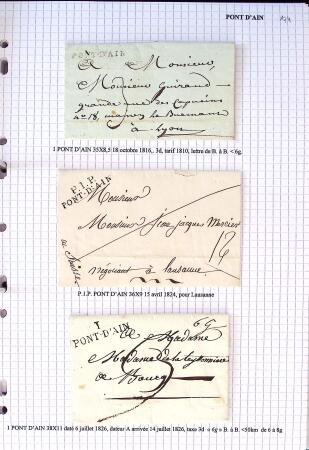 PONT D'AIN
PONT-D'AIN
A Monsieur
Monsieur Guiraud
grande rue des Capucins
n° 18, maison
à Lyon
1 PONT D'AIN 35X8,5 18 octobre 1816,, 3d, tarif 1810, lettre de B. à B. < 6g.
P.1.P.
PONT-D'AIN
Monsieur
Monsieur Jean Jacques Mercier
en Suisse
négociant à Lausanne
P.1.P. PONT D'AIN 36X9 15 avril 1824, pour Lausanne
1
PONT-D'AIN
6g
A Madame
Madame
à Bourg
1 PONT D'AIN 38X11 daté 6 juillet 1826, dateur A arrivée 14 juillet 1826, taxe 3d « 6g » B. à B. <50km de 6 à 8g